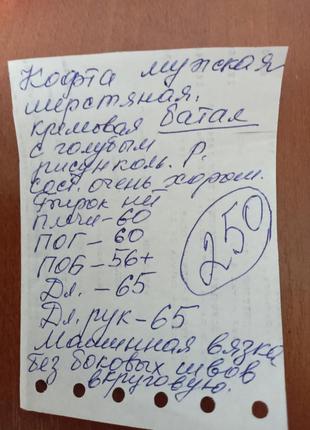 Кофта мужская
шерстяная.
кремовая батал
с голубым
рисунком. Р.
сост. очень хорош.
Бирок нет
Плечи-60
ПОГ-60
ПОБ-56+
Дл. -65
Дл. рук-65
машинная вязка
Без боковых швов
вкруговую.
250